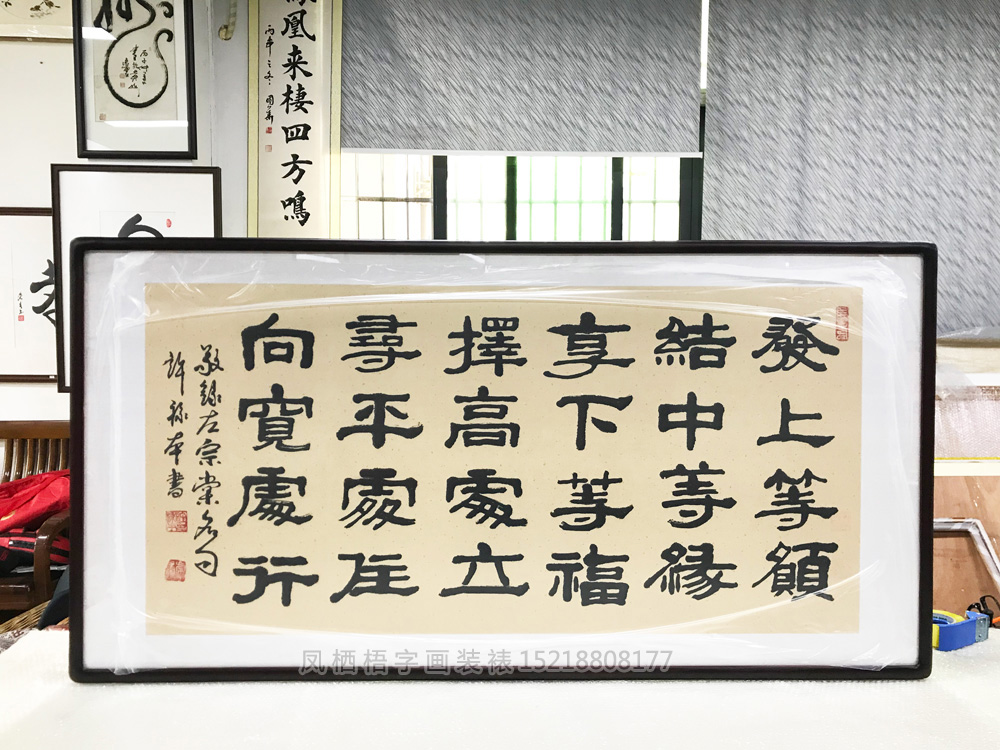 凰来棲四方鳴
之冬
發上等願
結中等緣
享下等福
擇高處立
尋平處住
向寬處行
敬錄左宗棠名句
許本書
凤栖梧字画装裱15218808177